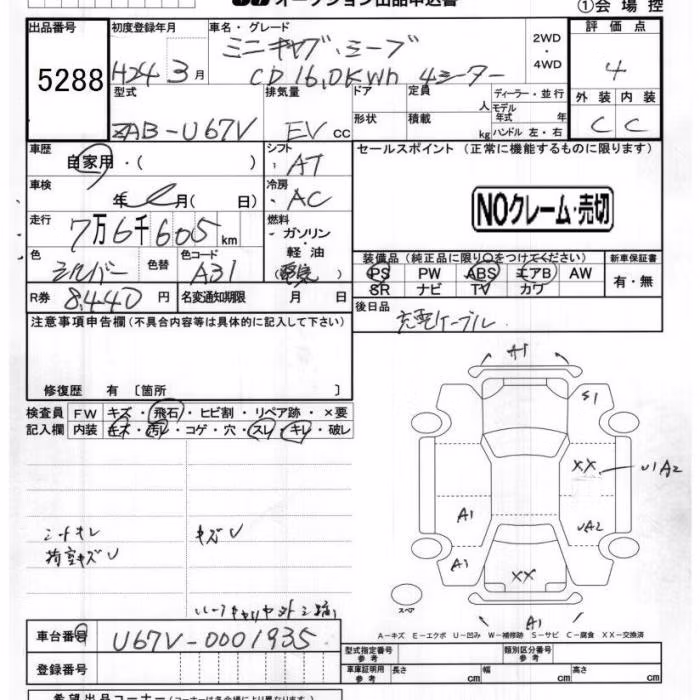 オークション出品申込書
①会場控
出品番号
5288
初度登録年月
H24 3月
車名・グレード
ミニキャブ・ミーブ
CD 16.0KWh 4シーター
2WD
・
4WD
評価点
4
外装 内装
C C
型式
ZAB-U67V
排気量
EV cc
ドア
形状
定員
人
積載
kg
ディーラー・並行
モデル
年式 年
ハンドル 左・右
車歴
自家用・( )
シフト
・AT
車検
年 月( 日)
冷房
・AC
走行
7万6千605km
燃料
・ガソリン
・軽油
色
シルバー
色替
色コード
A31
R券 8,440円
名変通知期限 月 日
セールスポイント (正常に機能するものに限ります)
NOクレーム・売切
装備品 (純正品に限り○をつけてください)
PS PW ABS エアB AW
SR ナビ TV カワ
新車保証書
有・無
後日品
充電ケーブル
注意事項申告欄(不具合内容等は具体的に記入して下さい)
修復歴 有 〔箇所 〕
検査員 FW キズ・飛石・ヒビ割・リペア跡・×要
記入欄 内装 キズ・汚レ・コゲ・穴・スレ・キレ・破レ
シートキレ
荷室キズU
キズU
A1
S1
XX
U1A2
A1
UA2
A1
XX
A1
スペア
A−キズ E−エクボ U−凹み W−補修跡 S−サビ C−腐食 XX−交換済
車台番号
U67V-0001935
登録番号
型式指定番号
参考
類別区分番号
参考
車庫証明用
参考
長さ cm
幅 cm
高さ cm
希望出品コーナー(コーナーは各会場により異なります)